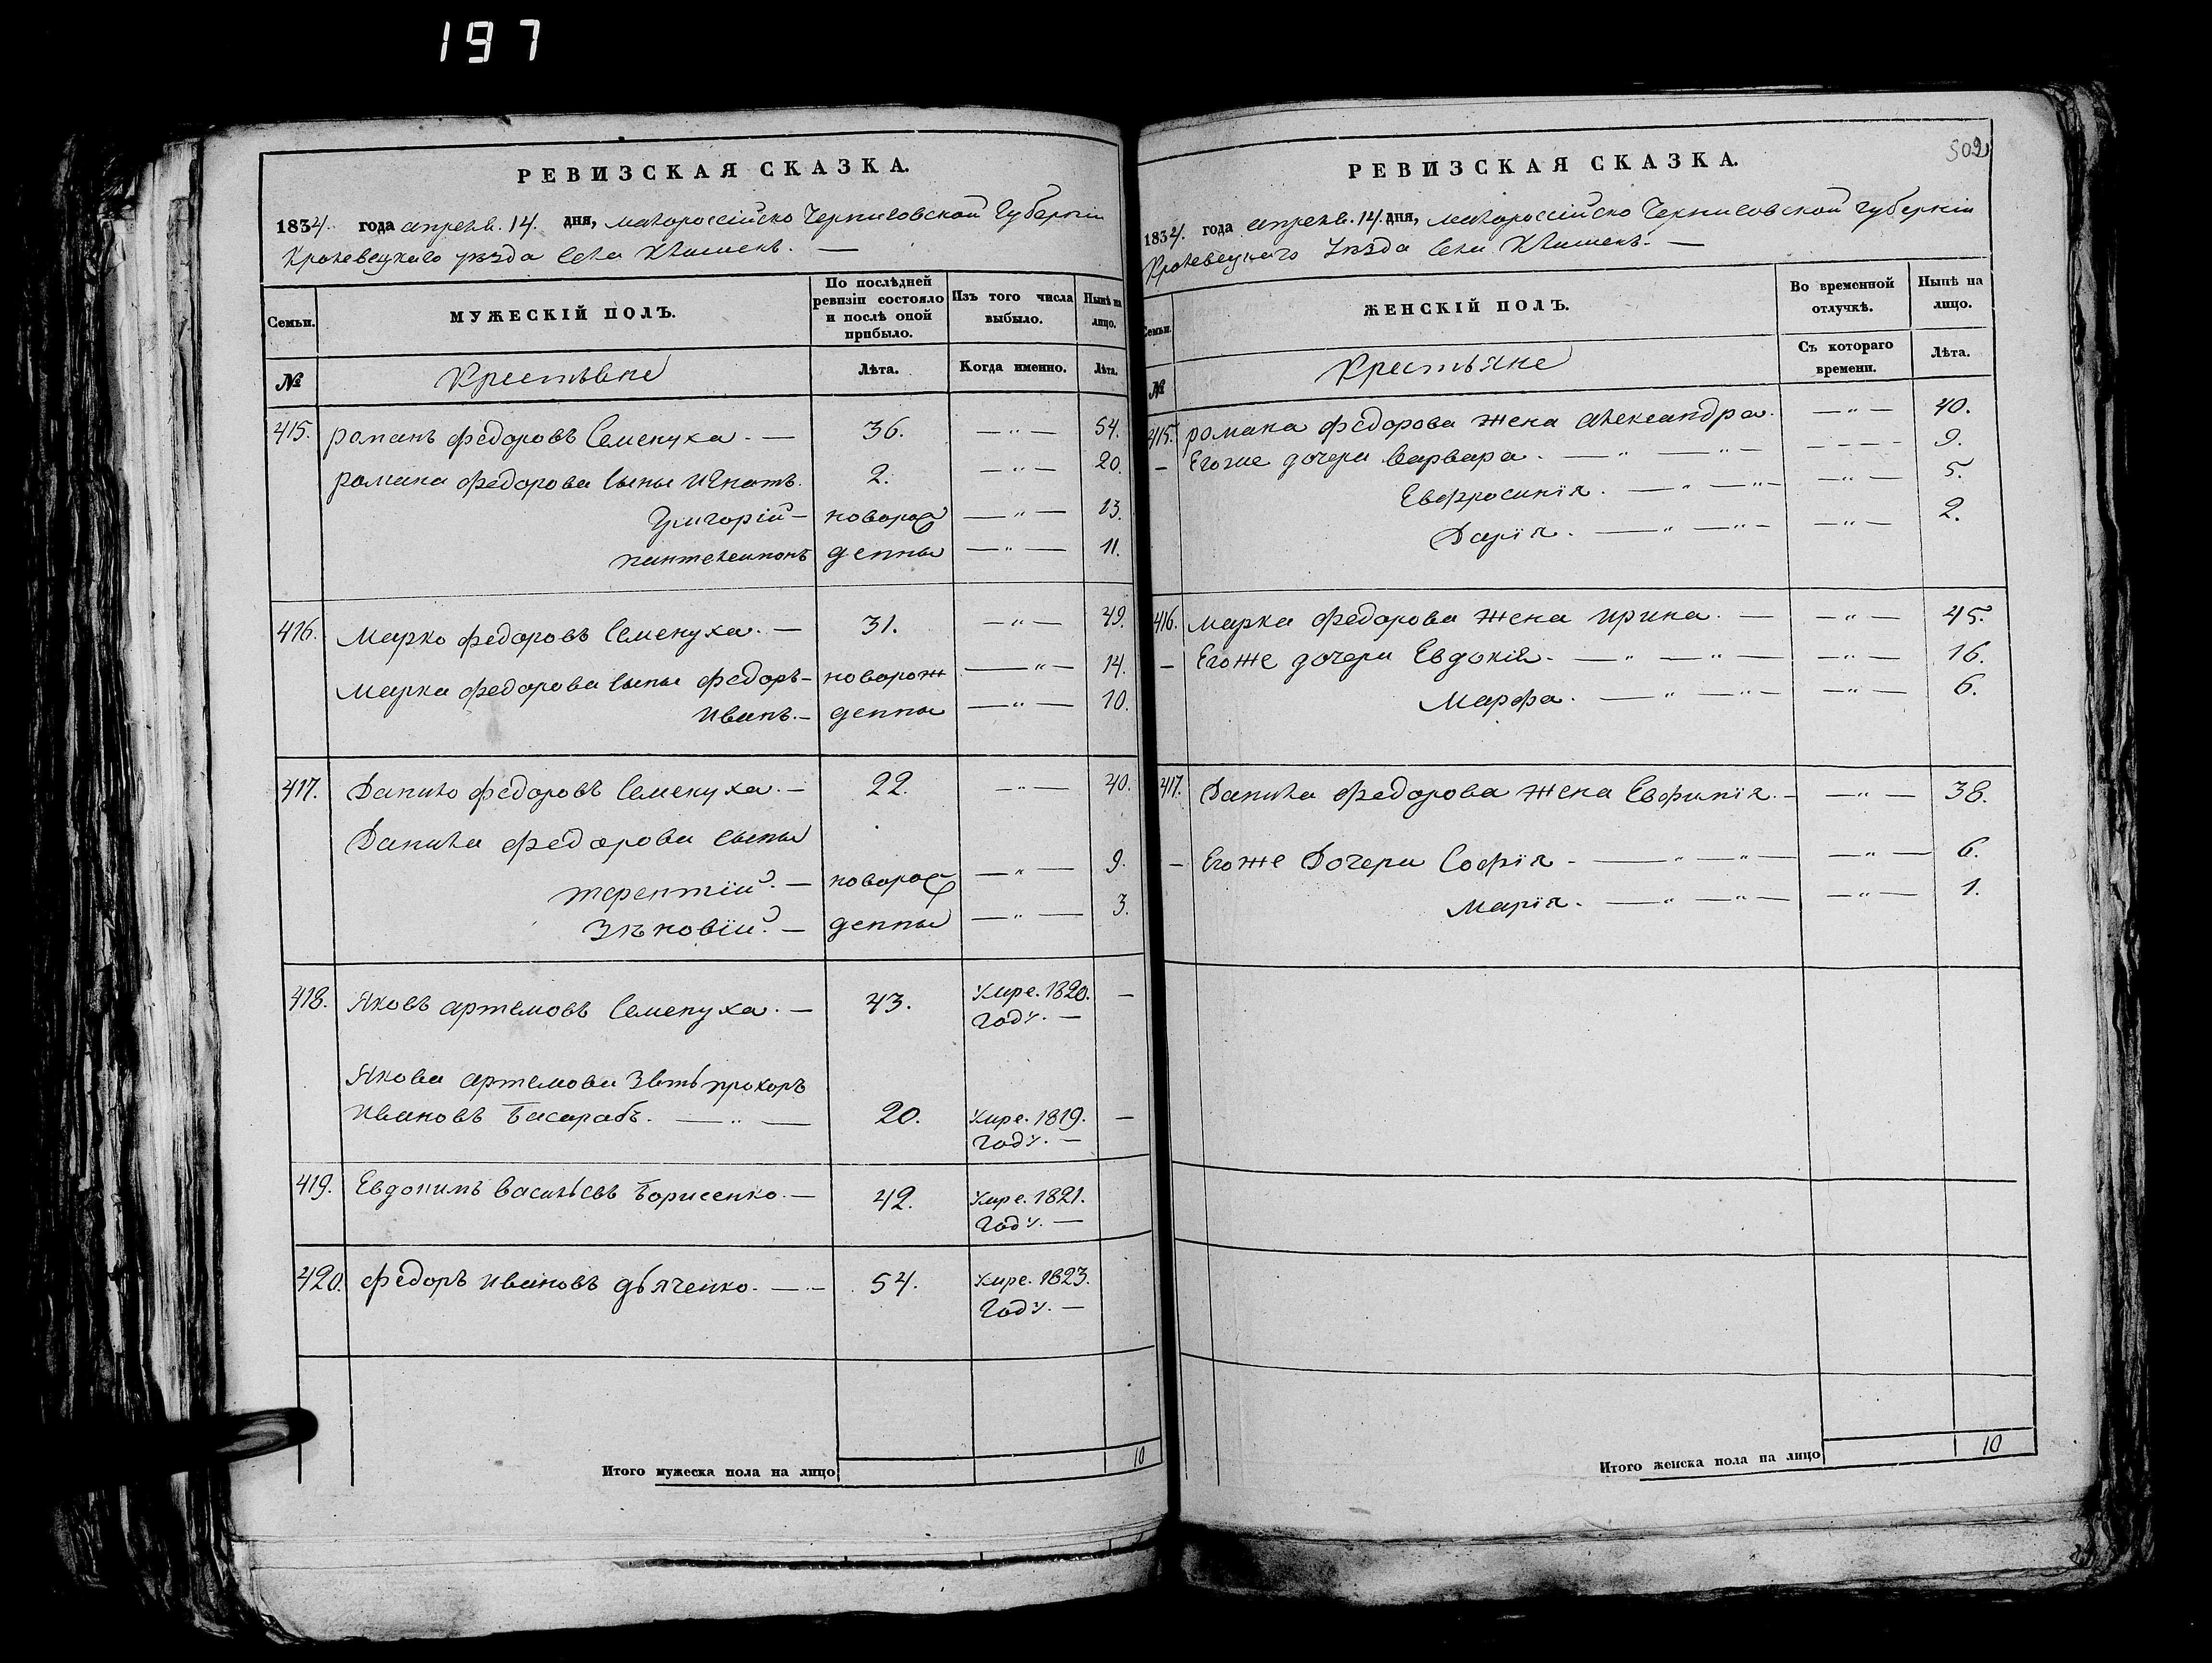 197
РЕВИЗСКАЯ СКАЗКА.
1834. года апреля. 14. дня, малороссійско Черниговской Губерніи
Кролевецкаго уезда Села Клишекъ. —
Семьи. МУЖЕСКІЙ ПОЛЪ. По послѣдней ревизіи состояло и послѣ оной прибыло. Изъ того числа выбыло. Нынѣ на лицо.
№ Крестьяне Лѣта. Когда именно. Лѣта.
415. романъ федоровъ Семенуха. — 36. — " — 54.
романа федорова сыны Игнатъ. 2. — " — 20.
Григорій — новорож — " — 13.
пантелеимонъ денны — " — 11.
416. Марко федоровъ Семенуха. — 31. — " — 49.
Марка федорова сыны федоръ — новорож — " — 14.
Иванъ. — денны — " — 10.
417. Данило федоровъ Семенуха. — 22. — " — 40.
Данила федорова сыны
терентій. — новорож — " — 9.
Зѣновій. — денны — " — 3.
418. Яковъ артемовъ Семенуха. — 43. Умре. 1820. —
году. —
Якова артемова Зять прохоръ
Ивановъ Басарабъ. — " — 20. Умре. 1819. —
году. —
419. Евдокимъ васильевъ Борисенко. — 42. Умре. 1821.
году. —
420. федоръ ивановъ дьяченко. — 54. Умре. 1823.
году. —
Итого мужеска пола на лицо 10
502
РЕВИЗСКАЯ СКАЗКА.
1834. года апреля. 14. дня, малороссійско Черниговской губерніи
Кролевецкаго Уезда Села Клишекъ. —
Семьи. ЖЕНСКІЙ ПОЛЪ. Во временной отлучкѣ. Нынѣ на лицо.
№ Крестьяне Съ котораго времени. Лѣта.
415. романа федорова жена александра. — " — 40.
— Егоже дочери Варвара. — " — " — 9.
Евфросинія. — " — " — 5.
Дарія. — " — " — 2.
416. марка федорова жена ирина. — — " — 45.
— Егоже дочери Евдокія. — " — " — 16.
Марфа. — " — " — 6.
417. Данила федорова жена Евфимія. — — " — 38.
— Егоже Дочери Софія — " — " — 6.
Марія. — " — " — 1.
Итого женска пола на лицо 10